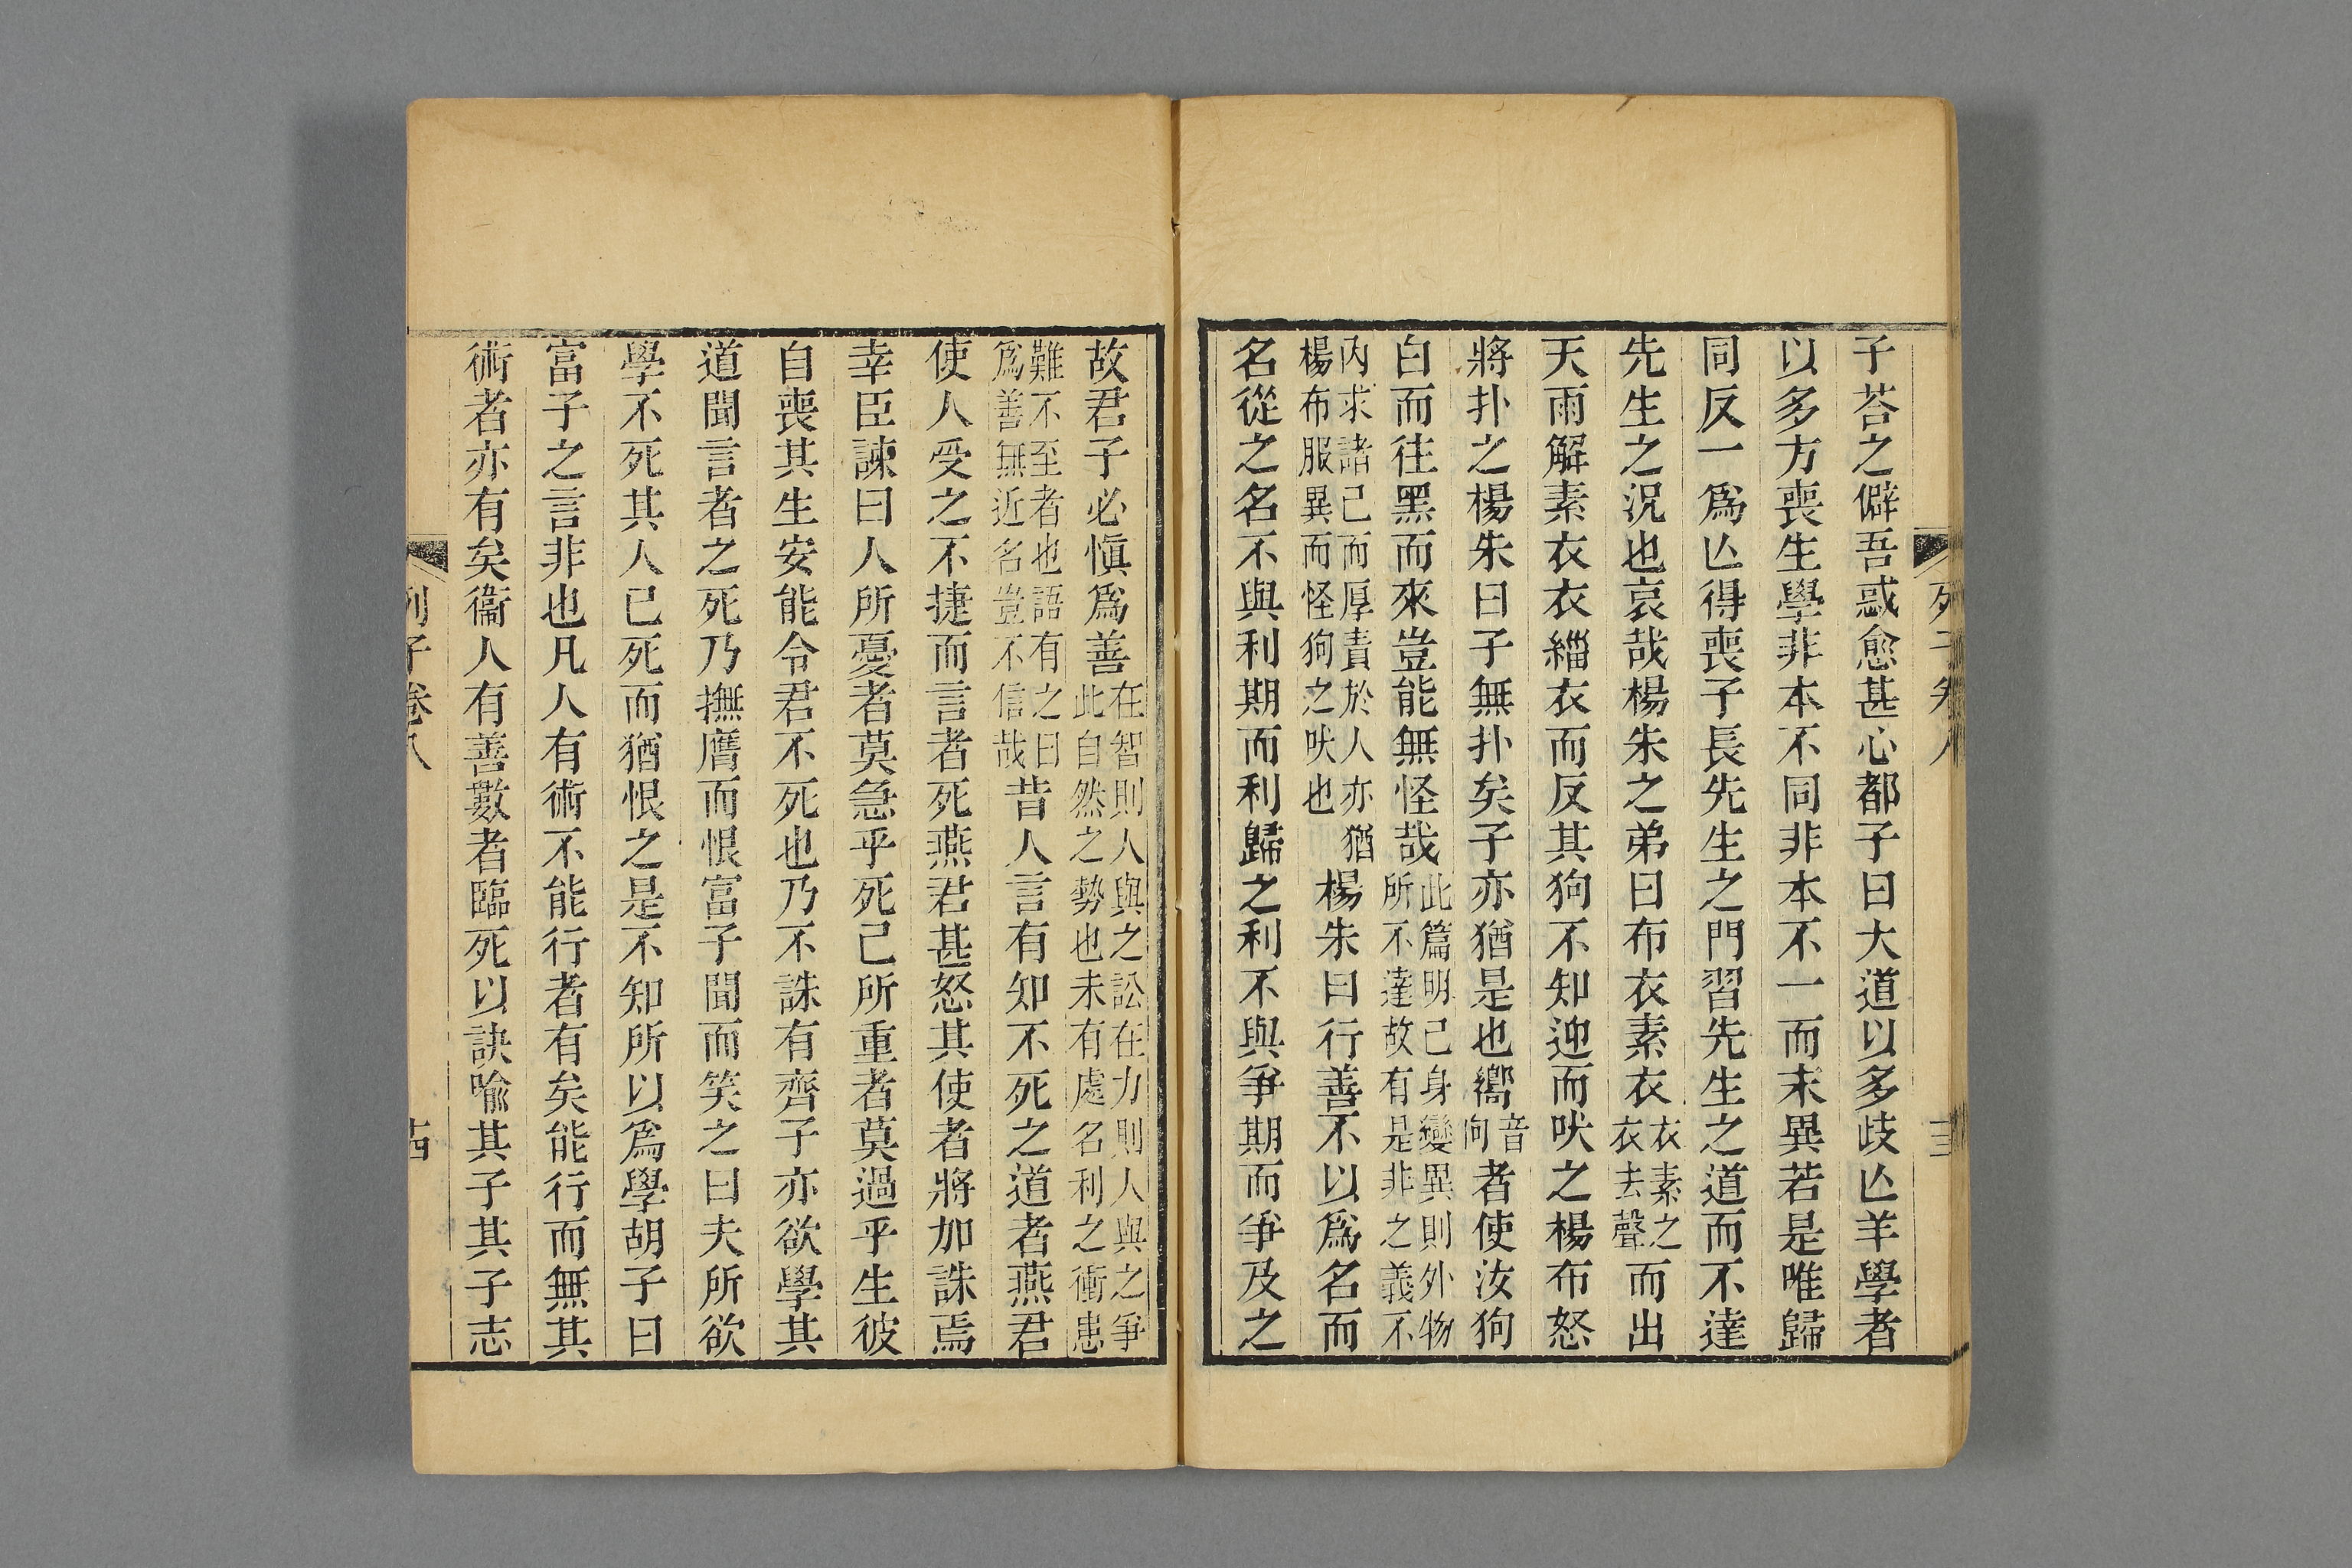 子荅之僻吾惑愈甚心都子曰大道以多歧亾羊學者
以多方喪生學非本不同非本不一而末異若是唯歸
同反一爲亾得喪子長先生之門習先生之道而不達
先生之況也哀哉楊朱之弟曰布衣素衣衣素之衣去聲而出
天雨解素衣衣緇衣而反其狗不知迎而吠之楊布怒
將扑之楊朱曰子無扑矣子亦猶是也嚮音向者使汝狗
白而往黑而來豈能無怪哉此篇明己身變異則外物所不達故有是非之義不
内求諸己而厚責於人亦猶楊布服異而怪狗之吠也楊朱曰行善不以爲名而
名從之名不與利期而利歸之利不與爭期而爭及之
列子卷八
故君子必愼爲善在智則人與之訟在力則人與之爭此自然之勢也未有處名利之衝患
難不至者也語有之曰爲善無近名豈不信哉昔人言有知不死之道者燕君
使人受之不捷而言者死燕君甚怒其使者將加誅焉
幸臣諫曰人所憂者莫急乎死己所重者莫過乎生彼
自喪其生安能令君不死也乃不誅有齊子亦欲學其
道聞言者之死乃撫膺而恨富子聞而笑之曰夫所欲
學不死其人已死而猶恨之是不知所以爲學胡子曰
富子之言非也凡人有術不能行者有矣能行而無其
術者亦有矣衞人有善數者臨死以訣喻其子其子志
列子卷八